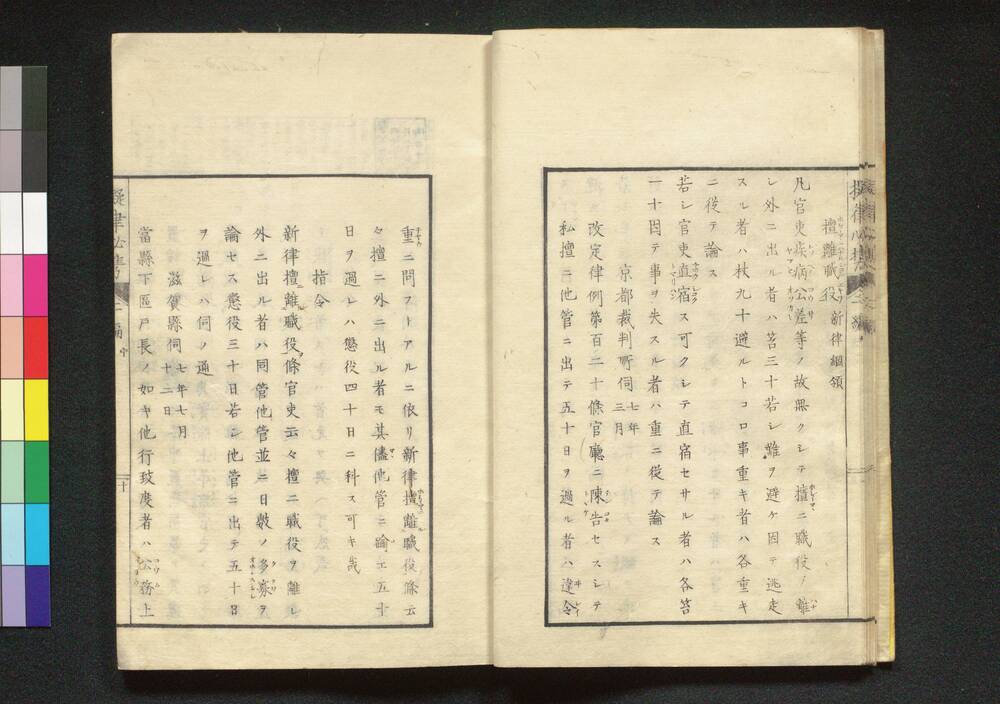 擅離職役 新律綱領
凡官吏疾病公差等ノ故無クシテ擅ニ職役ヲ離
レ外ニ出ル者ハ笞三十若シ難ヲ避ケ因テ逃走
スル者ハ杖九十避ルトコロ事重キ者ハ各重キ
ニ従テ論ス
若シ官吏直宿ス可クシテ直宿セサル者ハ各笞
二十因テ事ヲ失スル者ハ重ニ従テ論ス
京都裁判所伺 七年三月
改定律例第百二十條官廳ニ陳告セスシテ
私擅ニ他管ニ出テ五十日ヲ過ル者ハ違令
重ニ問フトアルニ依リ新律擅離職役條云
々擅ニ外ニ出ル者モ其儘他管ニ踰エ五十
日ヲ過レハ懲役四十日ニ科ス可キ哉
指令
新律擅離職役條官吏云々擅ニ職役ヲ離レ
外ニ出ル者ハ同管他管並ニ日數ノ多寡ヲ
論セス懲役三十日若シ他管ニ出テ五十日
ヲ過レハ伺ノ通
滋賀縣伺 七年七月十二日
當縣下區戸長ノ如キ他行致度者ハ公務上